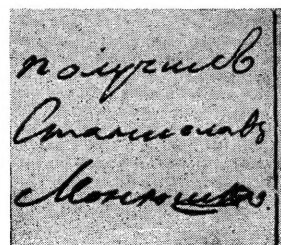 получилъ
Станиславъ
Монюшко